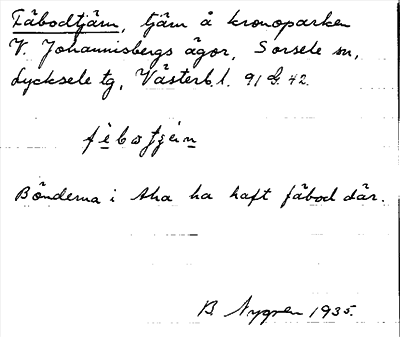 Fäbodtjärn, tjärn å kronoparken
V. Johannisbergs ägor, Sorsele sn,
Lycksele tg, Västerb. l. 91 G. 42.
Bönderna i Aha ha haft fäbod där.
B. Nygren 1935.